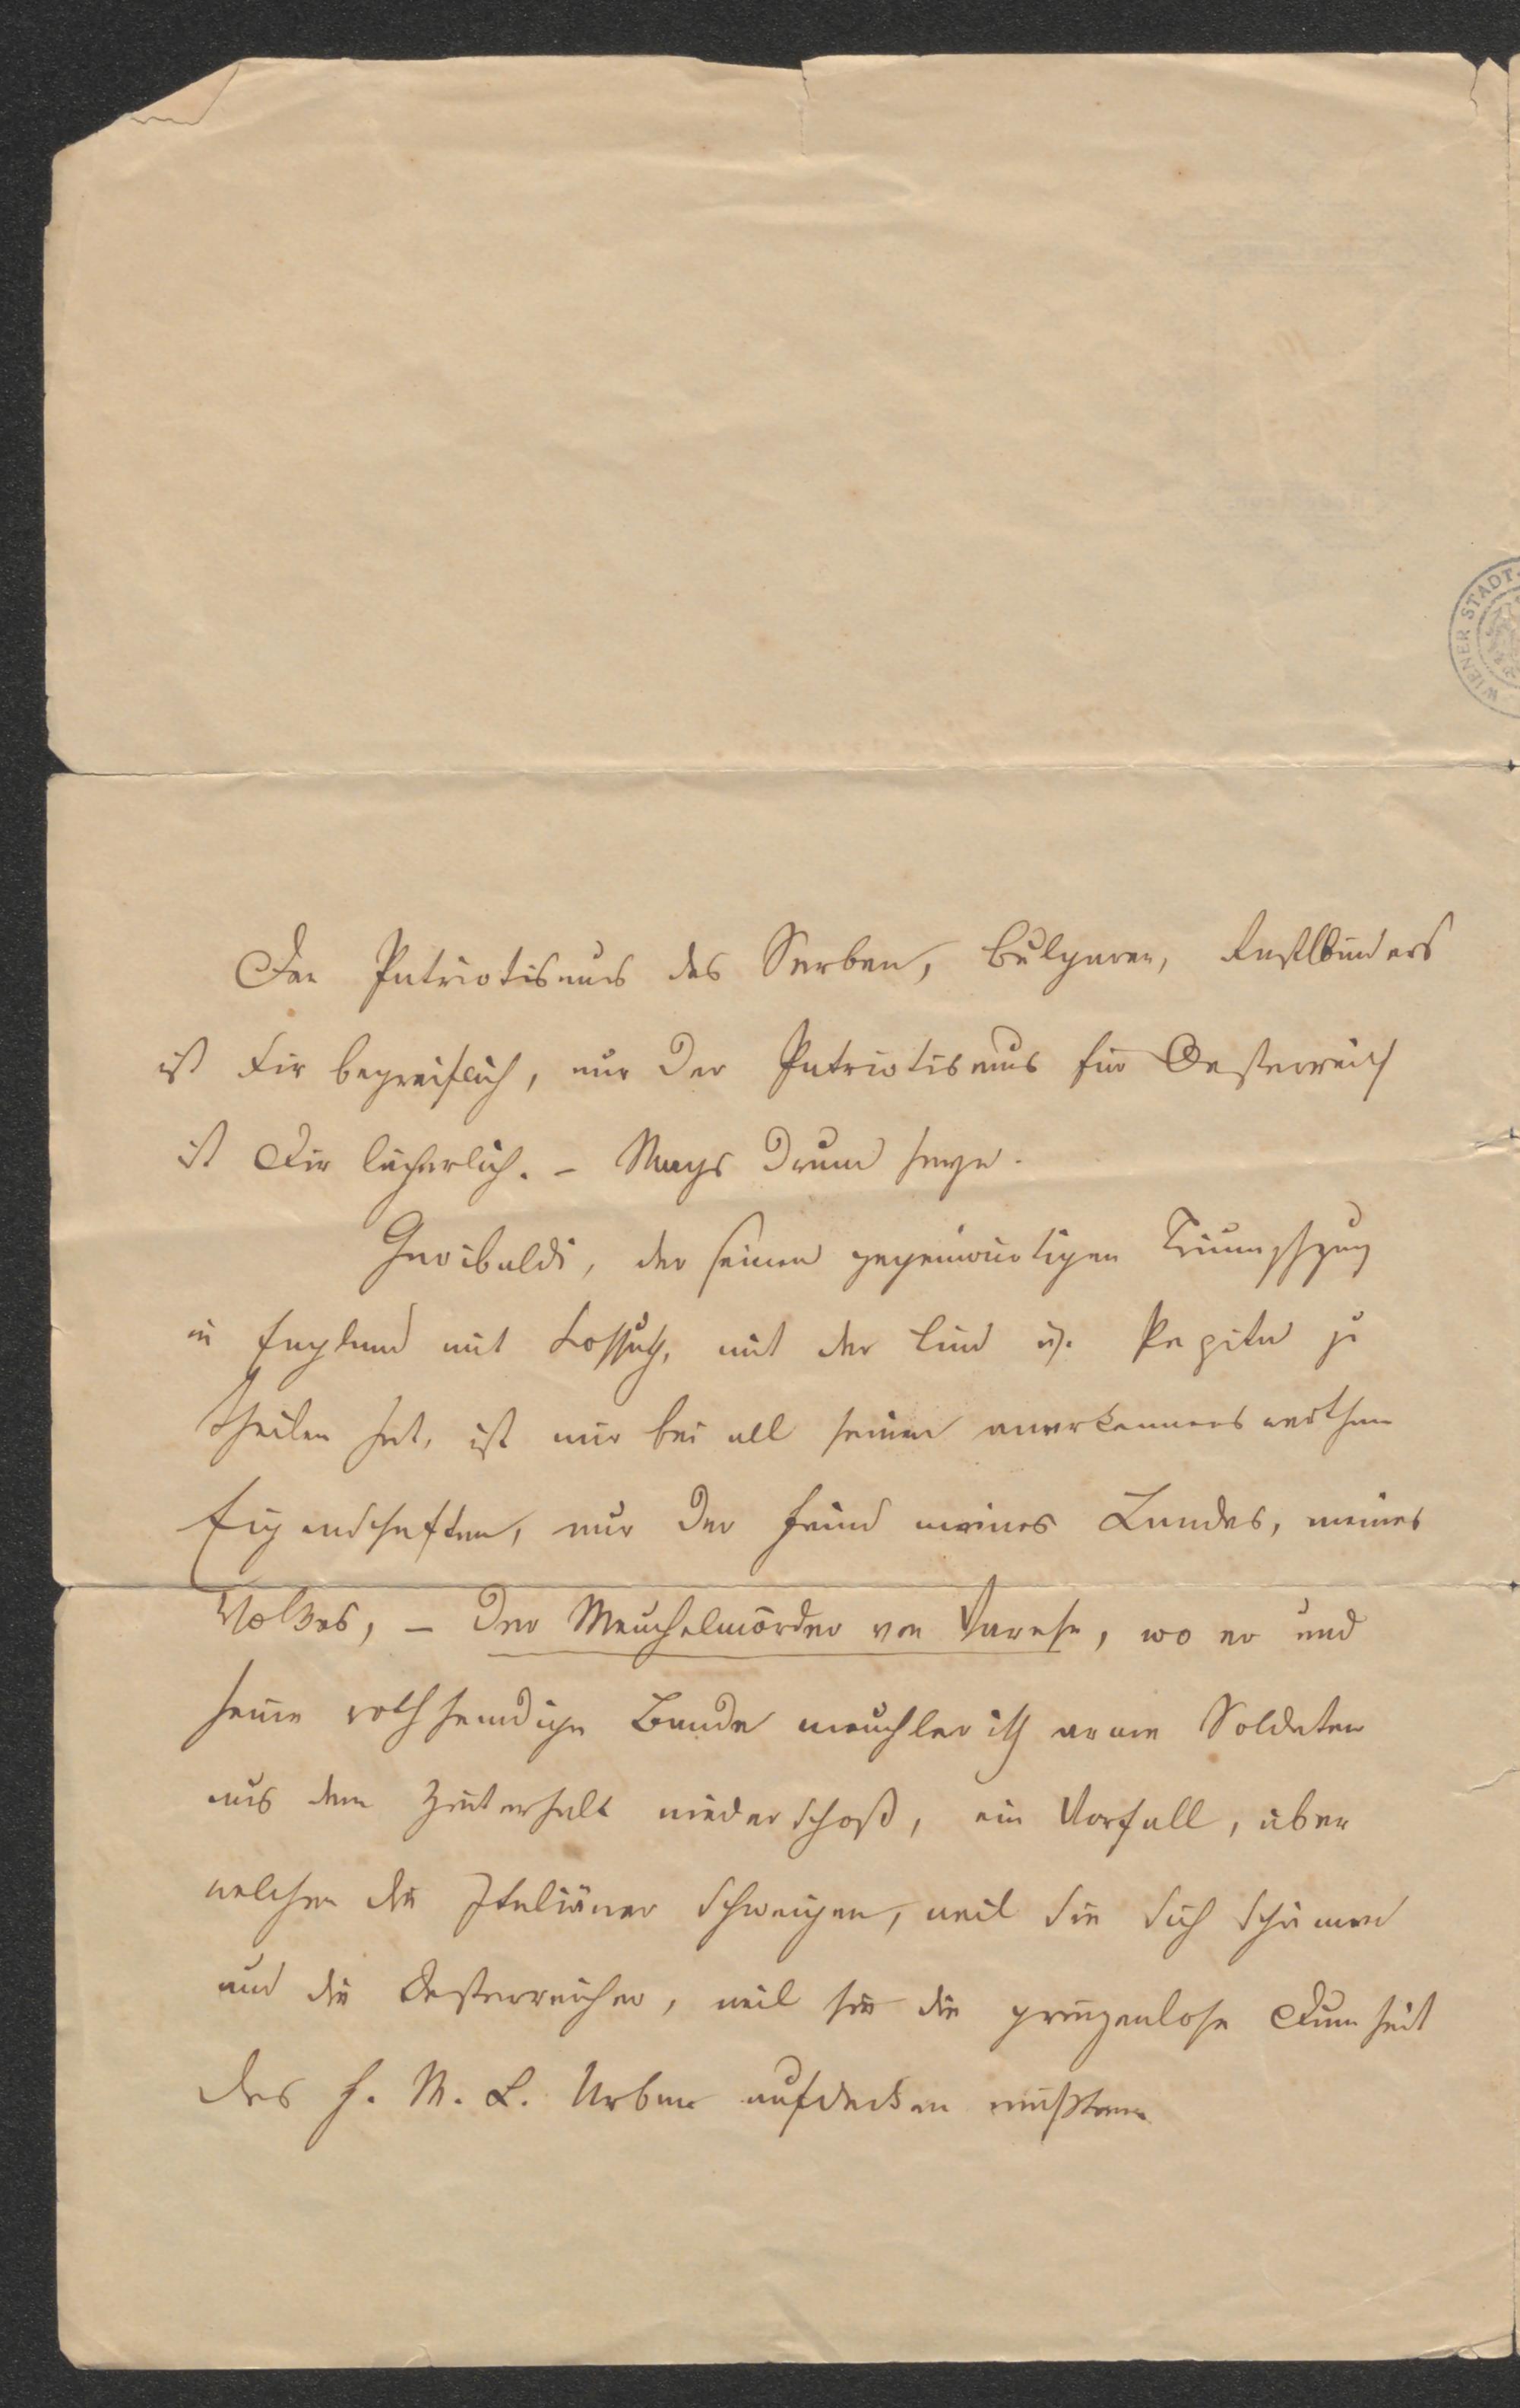 WIENER STADT
Der Patriotismus des Serben, Bulgaren, Rastlbinders
ist Dir begreiflich, nur der Patriotismus für Oesterreich
ist Dir lächerlich. – Mags drum seyn.
Garibaldi, der seinen gegenwärtigen Triumphzug
in England mit Kossuth, mit der Lind u. Pepita zu
theilen hat, ist mir bei all seinen anerkennenswerthen
Eigenschaften, nur der Feind meines Landes, meines
Volkes, – der Meuchelmörder von Varese, wo er und
seine rothhemdige Bande meuchlerisch arme Soldaten
aus dem Hinterhalt niederschoß, ein Vorfall, über
welchen die Italiäner schweigen, weil sie sich schämen
und die Oesterreicher, weil sie die grenzenlose Dumheit
des F. M. L. Urban aufdecken müßten